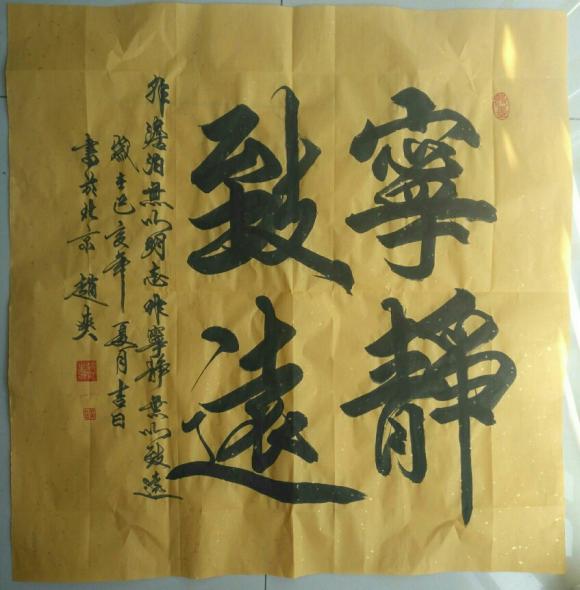 寧靜
致遠
非澹泊無以明志非寧靜無以致遠
歲在己亥年夏月吉日
書於北京趙爽